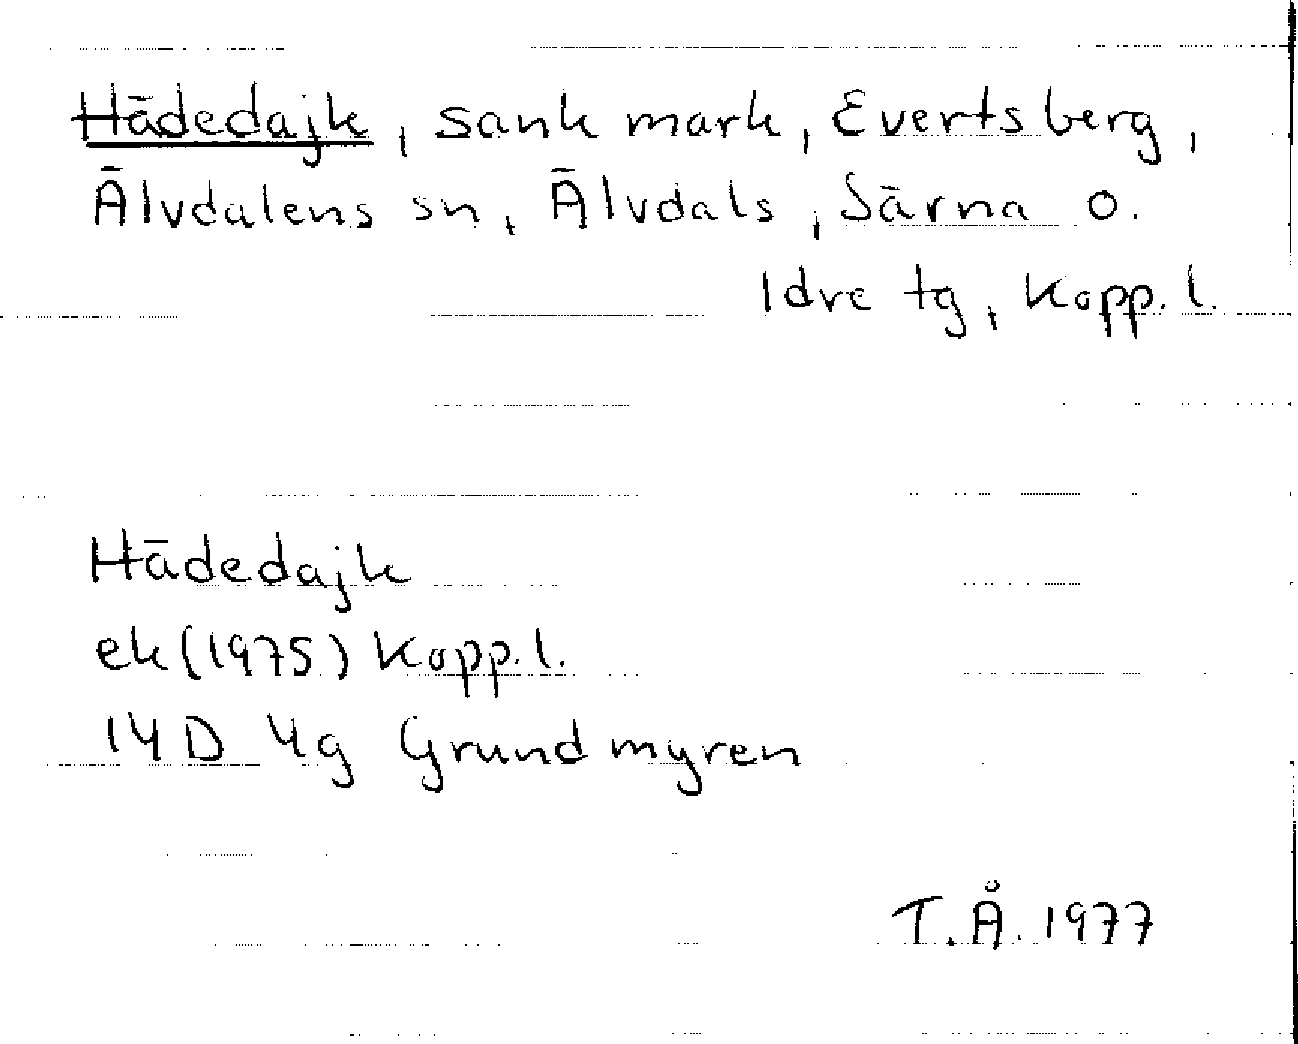 Hädedajk, sank mark, Evertsberg,
Älvdalens sn, Älvdals, Särna o.
Idre tg, Kopp. l.
Hädedajk
ek (1975) Kopp. l.
14D 4g Grundmyren
T.Å. 1977